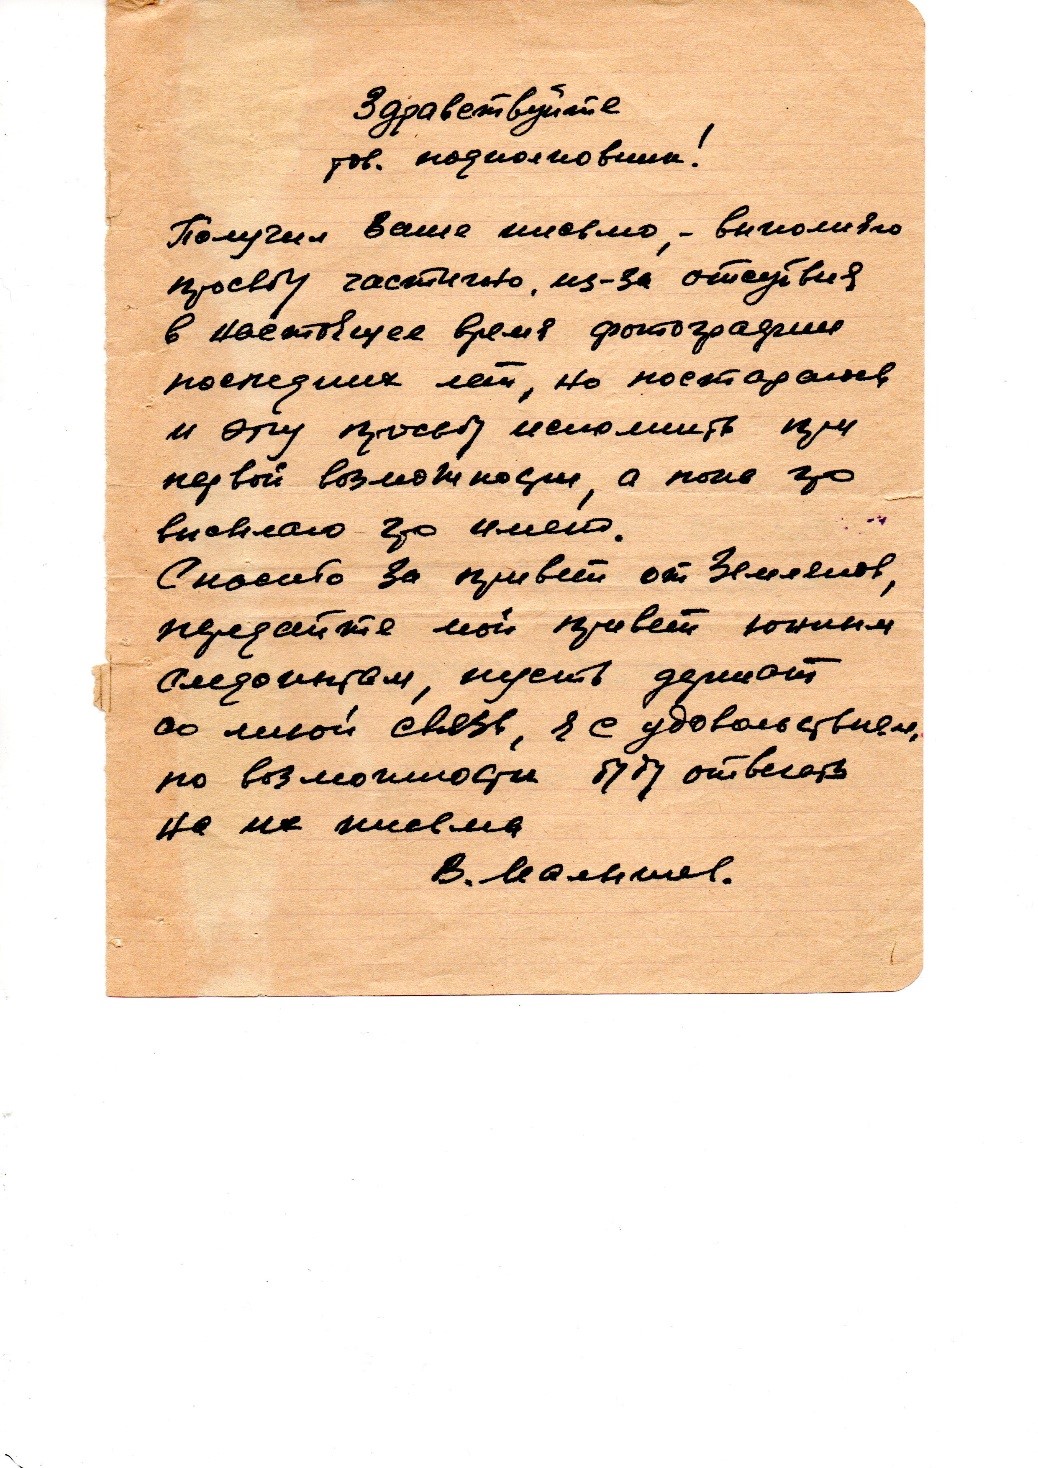 Здравствуйте
тов. подполковник!
Получил Ваше письмо, - выполняю
просьбу частично, из-за отсутствия
в настоящее время фотографии
последних лет, но постараюсь
и эту просьбу исполнить при
первой возможности, а пока что
высылаю что имею.
Спасибо за привет от земляков,
передайте мой привет юным
следопытам, пусть держат
со мной связь, я с удовольствием,
по возможности буду отвечать
на их письма
В. Малышев.